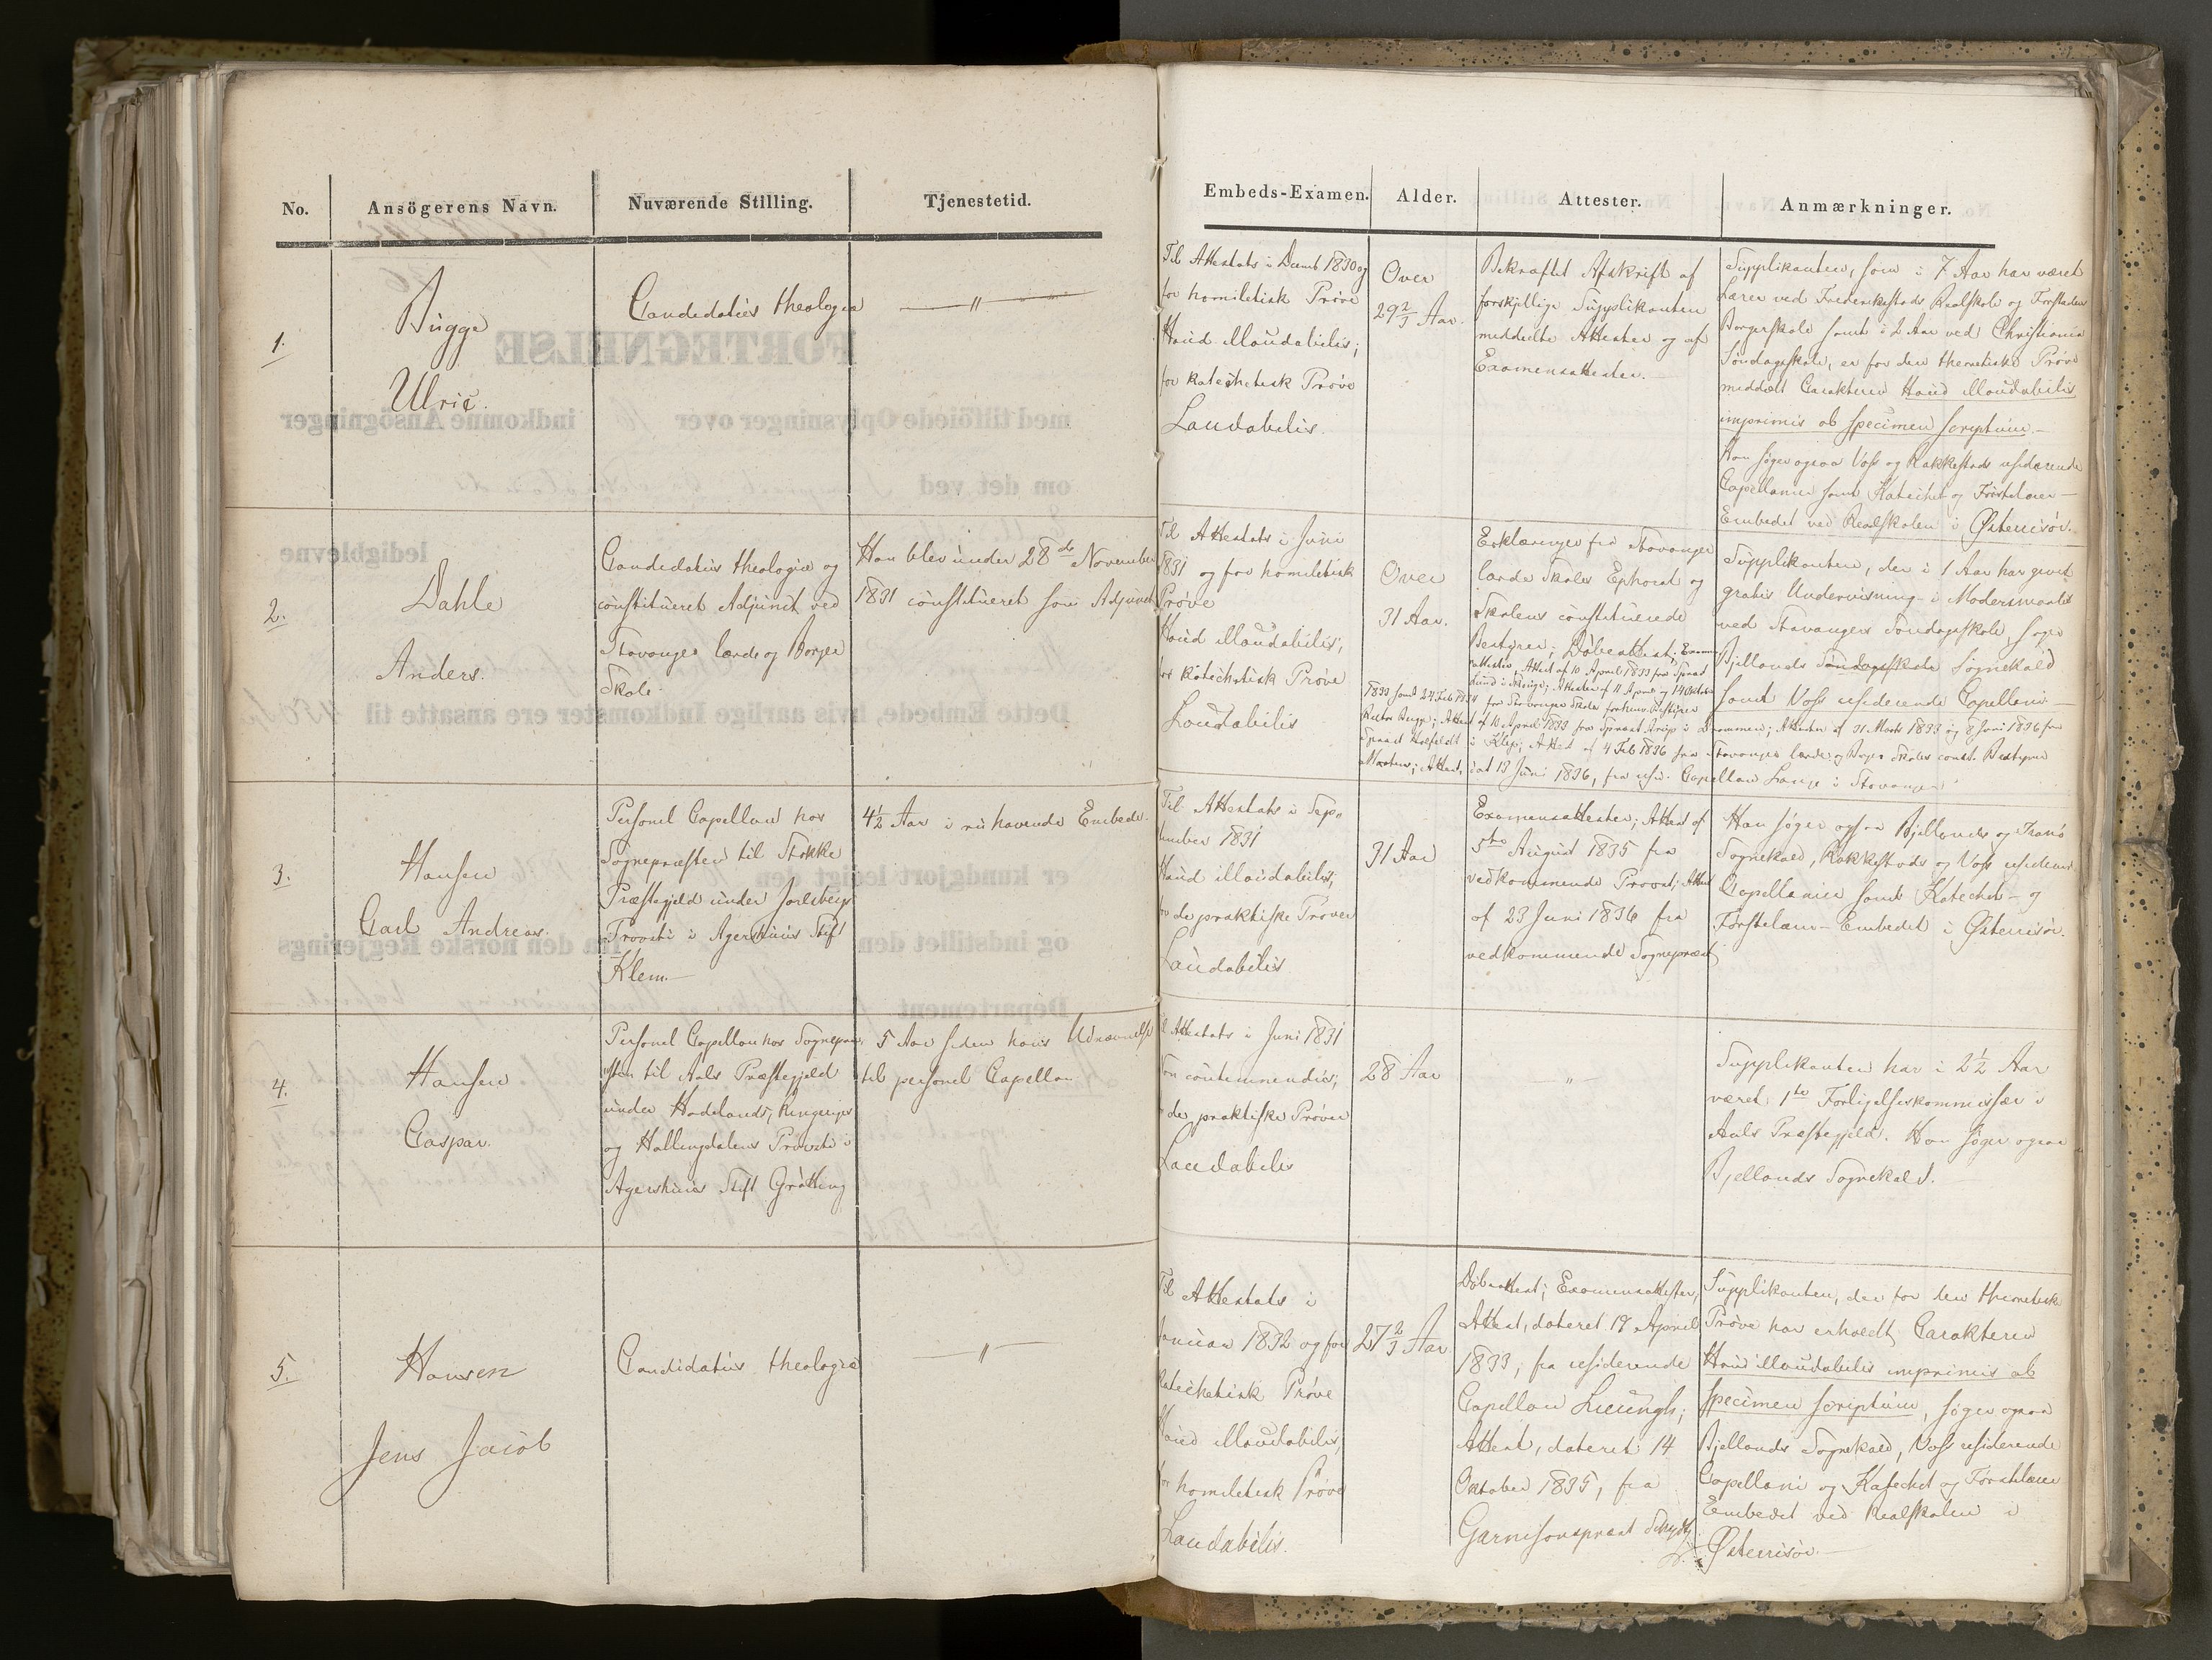 No.
Ansögerens Navn.
Nuværende Stilling.
Tjenestetid.
Embeds-Examen.
Alder.
Attester.
Anmærkninger.
1.
Bugge
Ulric.
Candidatus theologiæ
— " —
Til Attestats i Decemb 1830 og
for homiletisk Prøve
Haud illaudabilis;
for katechetisk Prøve
Laudabilis.
Over
29 2/3 Aar.
Bekræftet Afskrift af
forskjellige Supplikanten
meddelte Attester og af
Examensattester.
Supplikanten, som i 7 Aar har været
Lærer ved Frederikstads Realskole og Forstadens
Borgerskole samt i 2 Aar ved Christiania
Søndagsskole, er for den theoretiske Prøve
meddelt Carakteren Haud illaudabilis
imprimis ob specimen scriptum.—
Han søger ogsaa Voss og Rakkestads residerende
Capellanier samt Katechet- og Førstelærer—
Embedet ved Realskolen i Østerrisør.
2.
Dahle
Anders.
Candidatus theologiæ og
constitueret Adjunct ved
Stavanger lærde og Borger
Skole
Han blev under 28de November
1831 constitueret som Adjunct
Til Attestats i Juni
1831 og for homiletisk
Prøve
Haud illaudabilis;
for katechetisk Prøve
Laudabilis
Over
31 Aar.
Erklæringer fra Stavanger
lærde Skoles Ephorat og
Skolens constituerede
Bestyrer; Døbeattest; Examens
attester, Attest af 10 April 1833 fra Sprast
Lund i ; Attester af 11 April og 14 Oktober
1833 samt 24 Feb 1834 fra Stavanger Skoles forhenv. Bestyrer
Rector Bugge; Attest af 10 April 1833 fra Sprast Arup i Drammen; Attester af 31 Marts 1833 og 8 Juni 1836 fra
Sprast i Klep; Attest af 4 Feb 1836 fra Stavanger lærde og Borger Skoles const. Bestyrer
; Attest, dat 13 Juni 1836, fra resid. Capellan Lange i Stavanger
Supplikanten, der i 1 Aar har givet
gratis Underviisning i Modersmaalet
ved Stavangers Søndagsskole, søger
Bjellands Søndagsskole Sognekald
samt Voss residerende Capellani.—
3.
Hansen
Carl Andreas.
Personel Capellan hos
Sognepræsten til Stokke
Præstegjeld under Jarlsbergs
Provsti i Agershuus Stift
Klem.—
4½ Aar i nuhavende Embede.
Til Attestats i Sep-
tember 1831
Haud illaudabilis;
for de praktiske Prøver
Laudabilis
31 Aar
Examensattester; Attest af
5te August 1835 fra
vedkommende Provst; Attest
af 23 Juni 1836 fra
vedkommende Sognepræst
Han søger ogsaa Bjellands og Tranø
Sognekald, Rakkestads og Voss resider.
Capellanier samt Katechet- og
Førstelærer-Embedet i Østerrisør.
4.
Hansen
Caspar.
Personel Capellan hos Sognepræ-
sten til Aals Præstegjeld
under Hadelands, Ringeriges
og Hallingdalens Provsti i
Agershuus Stift Grøtting
5 Aar siden hans Udnævnelse
til personel Capellan
Til Attestats i Juni 1831
Non contemnendus;
for de praktiske Prøver
Laudabilis
28 Aar
— " —
Supplikanten har i 2½ Aar
været 1ste Forligelseskommissær i
Aals Præstegjeld. Han søger ogsaa
Bjellands Sognekald.
5.
Hansen
Jens Jacob
Candidatus theologiæ
— " —
Til Attestats i
Januar 1832 og for
katechetisk Prøve
Haud illaudabilis;
for homiletisk Prøve
Laudabilis.
27 2/3 Aar
Døbeattest; Examensattester,
Attest, dateret 19 April
1833, fra residerende
Capellan Lieungh;
Attest, dateret 14
Oktober 1835, fra
Garnisonspræst
Supplikanten, der for den theoretiske
Prøve har erholdt Carakteren
Haud illaudabilis imprimis ob
specimen scriptum, søger ogsaa
Bjellands Sognekald, Voss residerende
Capellani og Katechet og Førstelærer
Embedet ved Realskolen i
Østerrisør.—